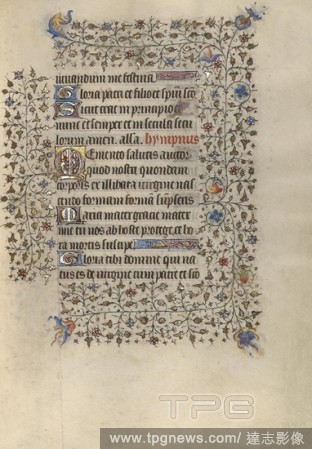 iuuandum me festina
Gloria patri et filio et spiritui sco
Sicut erat in principio et
nunc et semper et in secula secu
lorum amen. alla. hympnus
Memento salutis auctor
quod nostri quondam
corporis ex illibata uirgine nas
cendo formam sumpseris
Maria mater gracie mater
nie tu nos ab hoste protege et ho
ra mortis suscipe
Gloria tibi domine qui na
tus es de uirgine cum patre et sco
TPG
www.tpgnews.com/達志影像